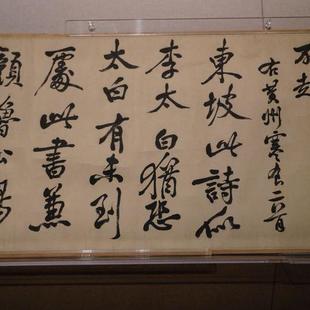 不起
右黄州寒食二首
東坡此詩似
李太白猶恐
太白有未到
處此書兼
顏魯公楊